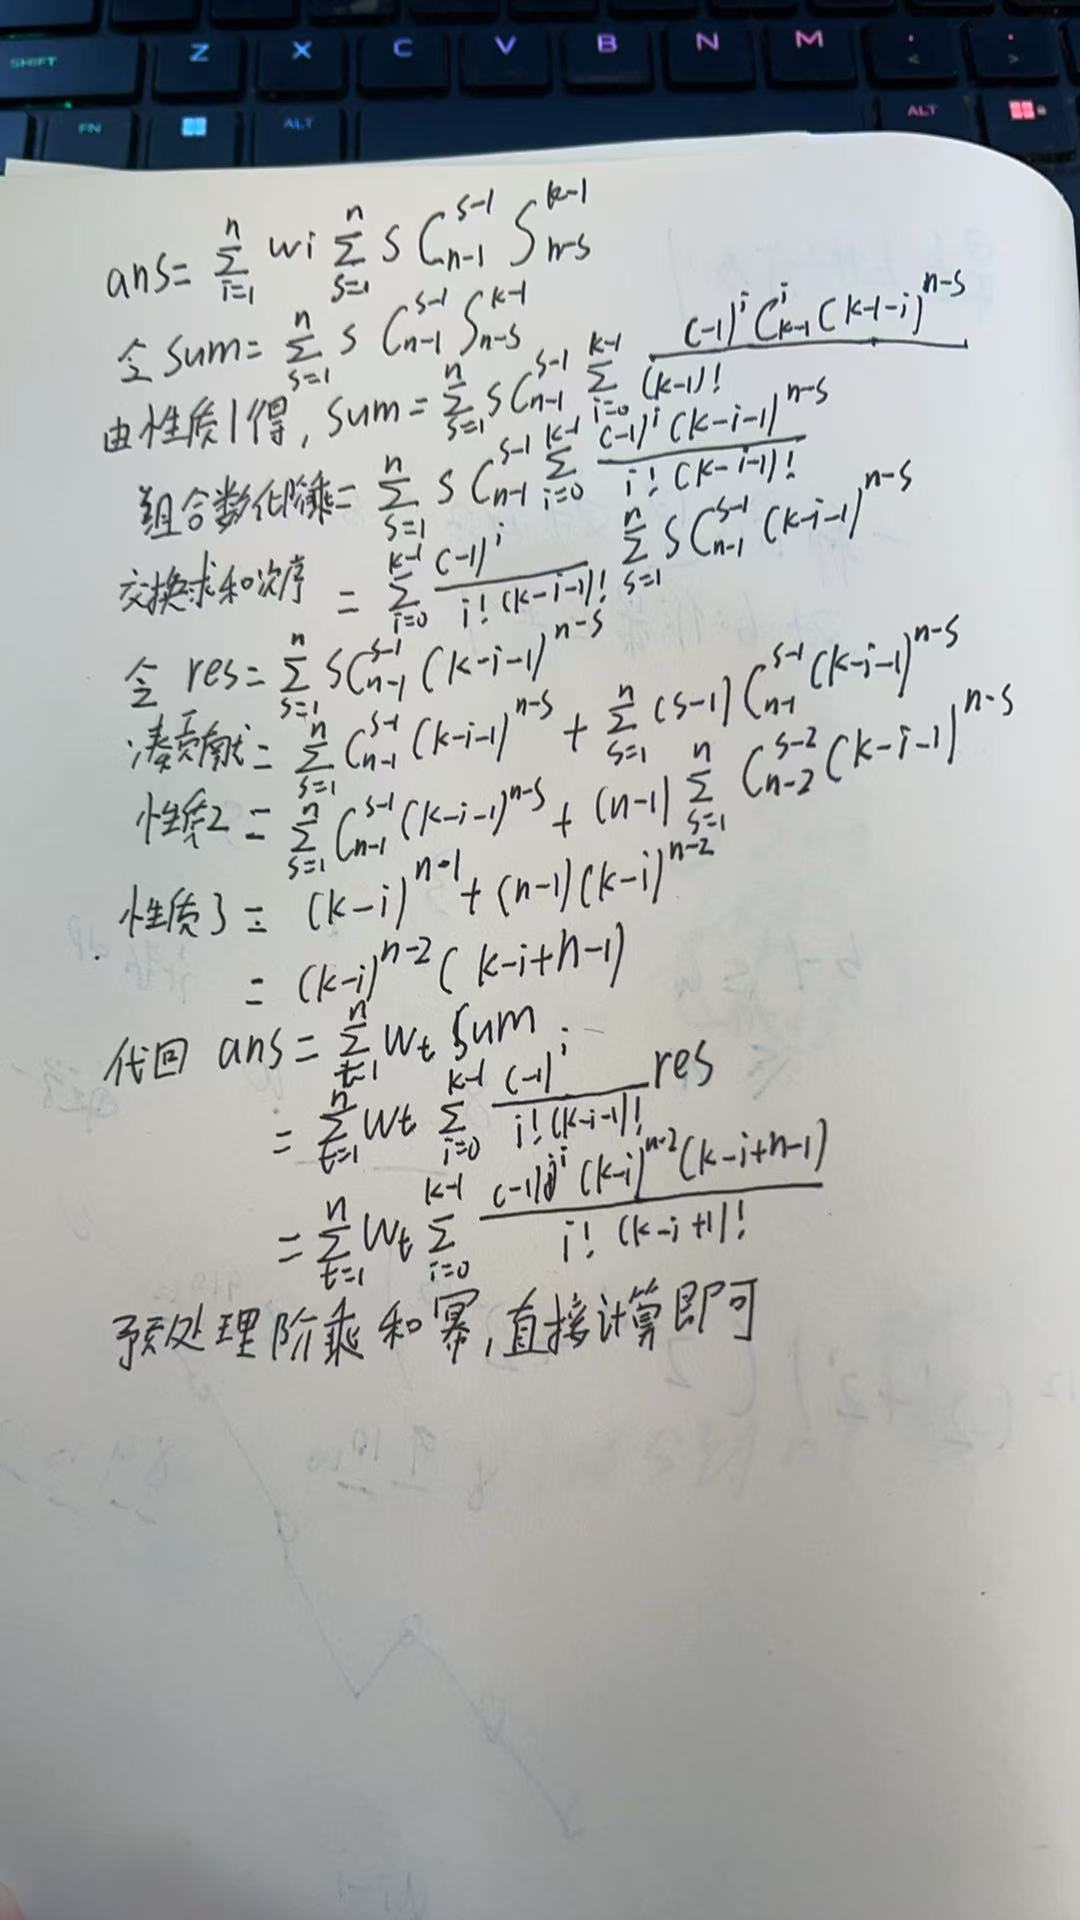 SHIFT Z X C V B N M , < . >
FN ALT ALT
ans = \sum_{i=1}^{n} wi \sum_{s=1}^{n} s C_{n-1}^{s-1} S_{n-s}^{k-1}
令 sum = \sum_{s=1}^{n} s C_{n-1}^{s-1} S_{n-s}^{k-1}
由性质1得, sum = \sum_{s=1}^{n} s C_{n-1}^{s-1} \sum_{i=0}^{k-1} \frac{(-1)^i C_{k-1}^{i} (k-1-i)^{n-s}}{(k-1)!}
组合数化阶乘 = \sum_{s=1}^{n} s C_{n-1}^{s-1} \sum_{i=0}^{k-1} \frac{(-1)^i (k-i-1)^{n-s}}{i! (k-i-1)!}
交换求和次序 = \sum_{i=0}^{k-1} \frac{(-1)^i}{i! (k-i-1)!} \sum_{s=1}^{n} s C_{n-1}^{s-1} (k-i-1)^{n-s}
令 res = \sum_{s=1}^{n} s C_{n-1}^{s-1} (k-i-1)^{n-s}
凑贡献 = \sum_{s=1}^{n} C_{n-1}^{s-1} (k-i-1)^{n-s} + \sum_{s=1}^{n} (s-1) C_{n-1}^{s-1} (k-i-1)^{n-s}
性质2 = \sum_{s=1}^{n} C_{n-1}^{s-1} (k-i-1)^{n-s} + (n-1) \sum_{s=1}^{n} C_{n-2}^{s-2} (k-i-1)^{n-s}
性质3 = (k-i)^{n-1} + (n-1) (k-i)^{n-2}
= (k-i)^{n-2} (k-i+n-1)
代回 ans = \sum_{t=1}^{n} W_t sum
= \sum_{t=1}^{n} W_t \sum_{i=0}^{k-1} \frac{(-1)^i}{i! (k-i-1)!} res
= \sum_{t=1}^{n} W_t \sum_{i=0}^{k-1} \frac{(-1)^i (k-i)^{n-2} (k-i+n-1)}{i! (k-i+1)!}
预处理阶乘和幂,直接计算即可